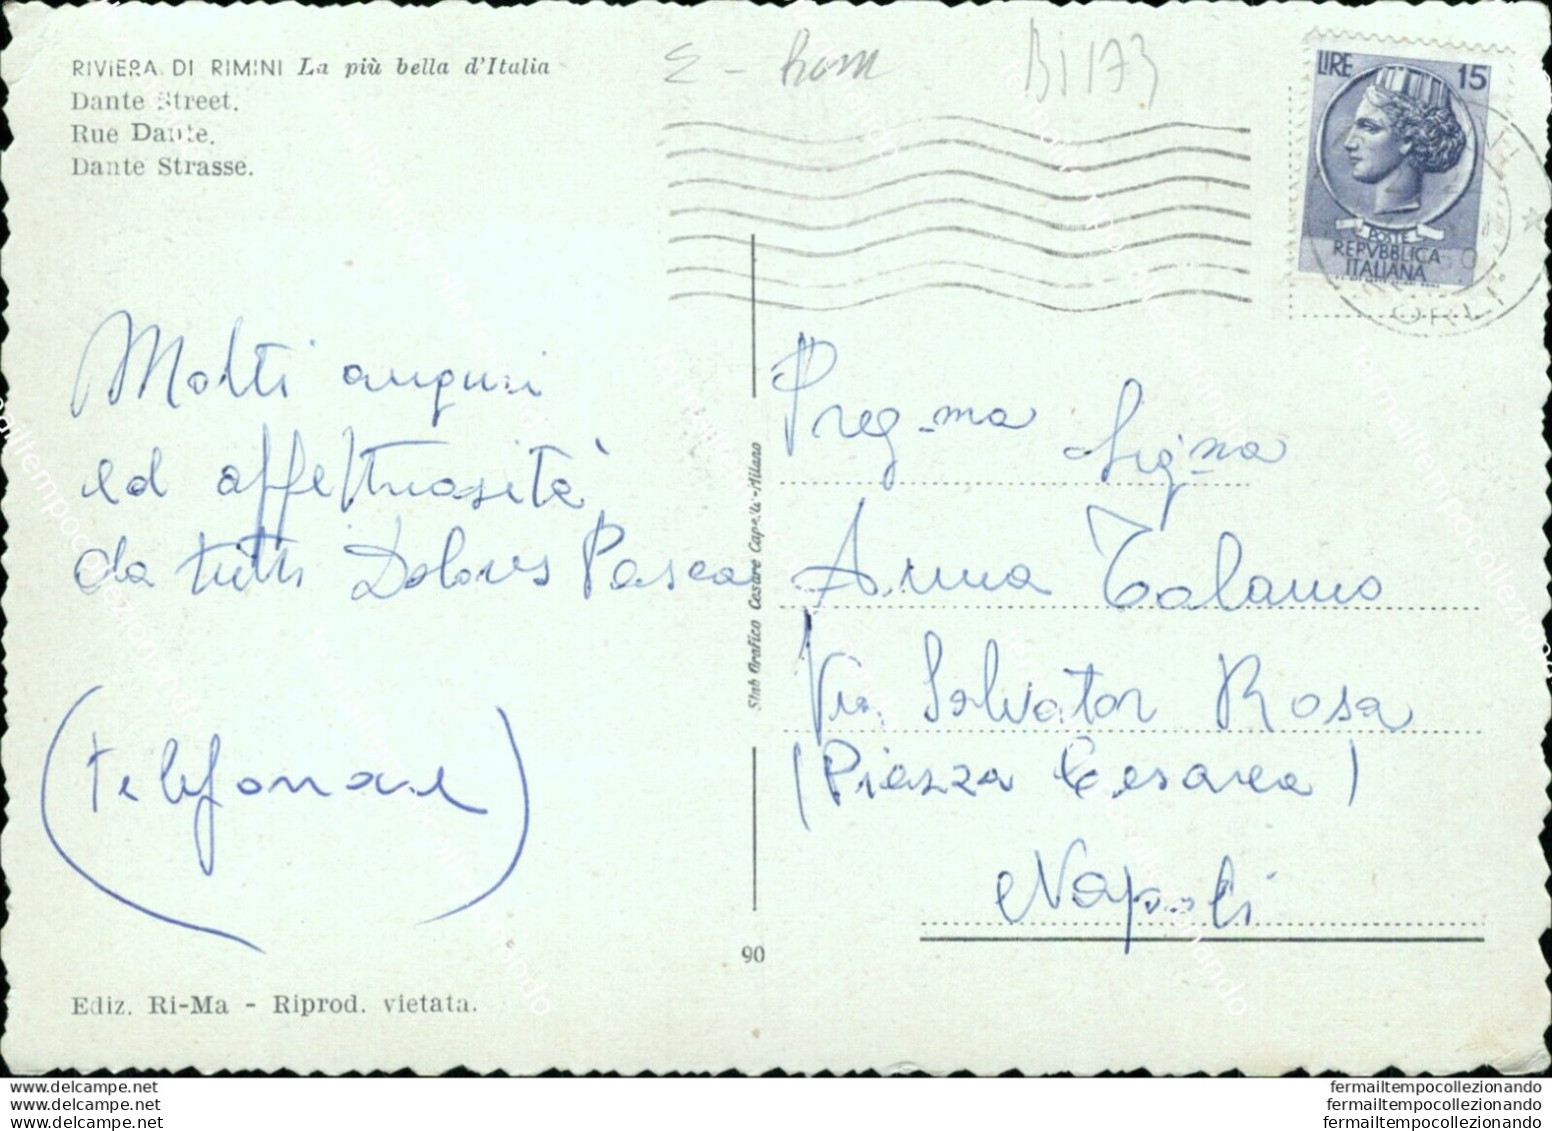 RIVIERA DI RIMINI La più bella d'Italia
Dante Street.
Rue Dante.
Dante Strasse.
E - Rom
BI 173
LIRE 15
POSTE
REPVBBLICA
ITALIANA
Molti auguri
ed affettuosità
da tutti Dolores Pasca
(telefonare)
Preg-ma Sig.na
Anna Talamo
Via Salvator Rosa
(Piazza Cesarea)
Napoli
Stab Grafico Cesare Capello-Milano
90
Ediz. Ri-Ma - Riprod. vietata.
delcampe.net
delcampe.net
delcampe.net
fermailtempocollezionando
fermailtempocollezionando
fermailtempocollezionando